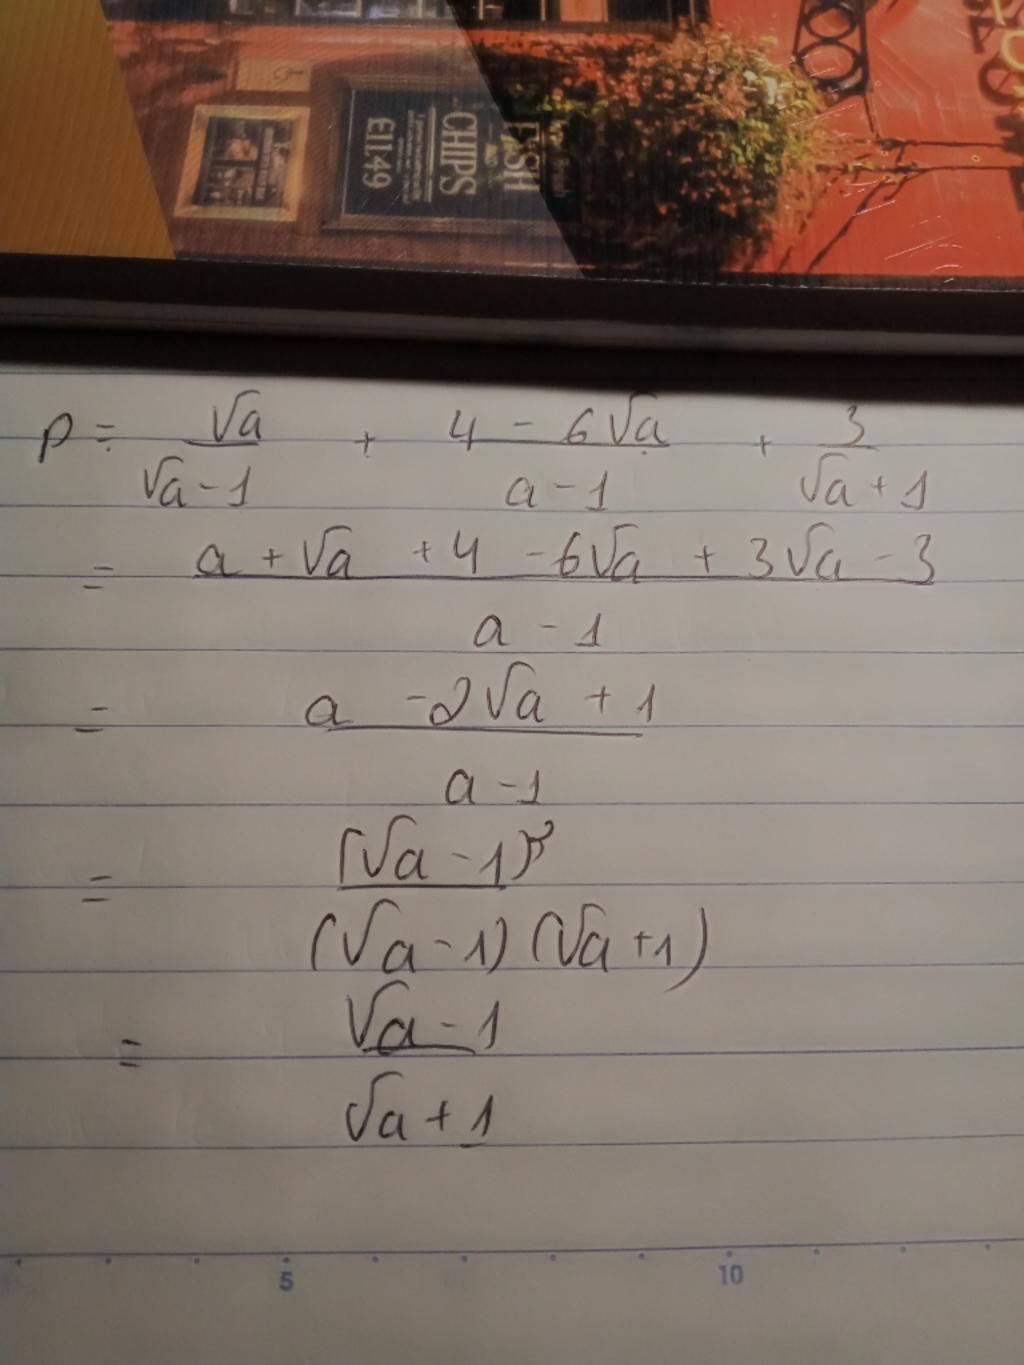 FISH
AND
CHIPS
E11.49
P = \frac{\sqrt{a}}{\sqrt{a} - 1} + \frac{4 - 6\sqrt{a}}{a - 1} + \frac{3}{\sqrt{a} + 1}
= \frac{a + \sqrt{a} + 4 - 6\sqrt{a} + 3\sqrt{a} - 3}{a - 1}
= \frac{a - 2\sqrt{a} + 1}{a - 1}
= \frac{(\sqrt{a} - 1)^2}{(\sqrt{a} - 1)(\sqrt{a} + 1)}
= \frac{\sqrt{a} - 1}{\sqrt{a} + 1}
5 10